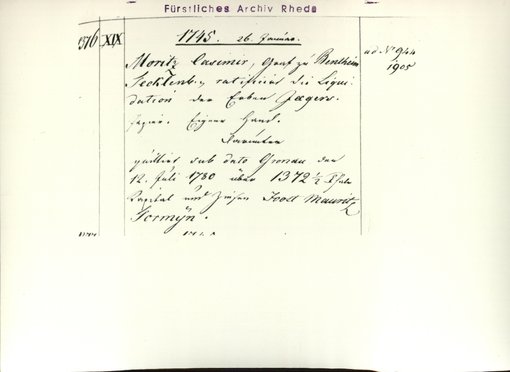 Fürstliches Archiv Rheda
1576 XIX 1745. 26. Januar. ad No 944
1905
Moritz Casimir, Graf zu Bentheim
Tecklenb., ratificirt die Liqui-
dation der Erben Jagers.
Papier. Eigene Hand.
Darunter
quittirt sub dato Gronau den
12. Juli 1780 über 1372 1/2 Rthlr
Capital und Zinsen Joost Mauritz
Termÿn.